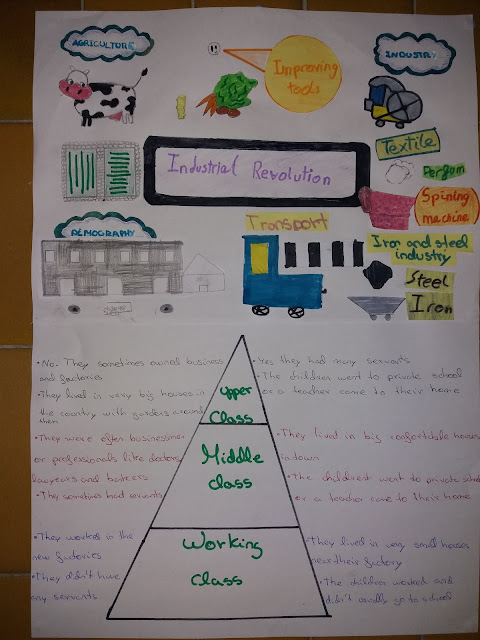 AGRICULTURE
INDUSTRY
Improving
tools
Textile
Pergum
Industrial Revolution
Spining
machine
Transport
DEMOGRAPHY
Iron and steel
industry
Steel
Iron
•No. They sometimes owned business
and factories
•They lived in very big houses in
the country with gardens around
them
•Yes they had many servants
•The children went to private school
or a teacher came to their home
Upper
Class
•They were often businessmen
or professionals like doctors,
lawyears and bankers
•They sometimes had servants
Middle
class
•They lived in big confortable houses
in town
•The childrest went to private school
or a teacher came to their home.
•They worked in the
new factories
•They didn't have
any servants
Working
class
•They lived in very small houses
near their factory
•The children worked and
didn't usually go to school